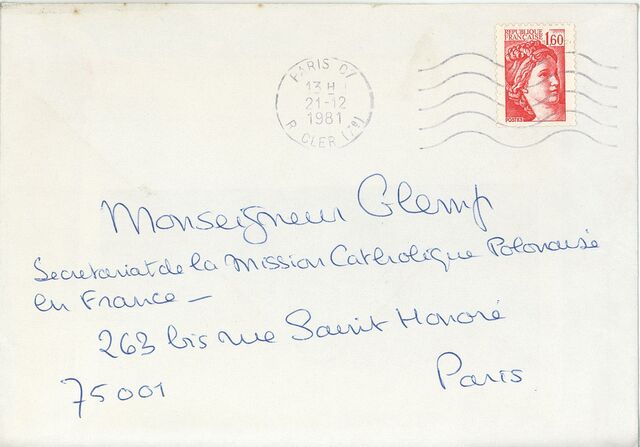 REPUBLIQUE
FRANÇAISE 1,60
POSTES
PARIS 07
13 H
21-12
1981
R. CLER (7e)
Monseigneur Glemp
Secretariat de la Mission Catholique Polonaise
en France –
263 bis rue Saint Honoré
75001 Paris